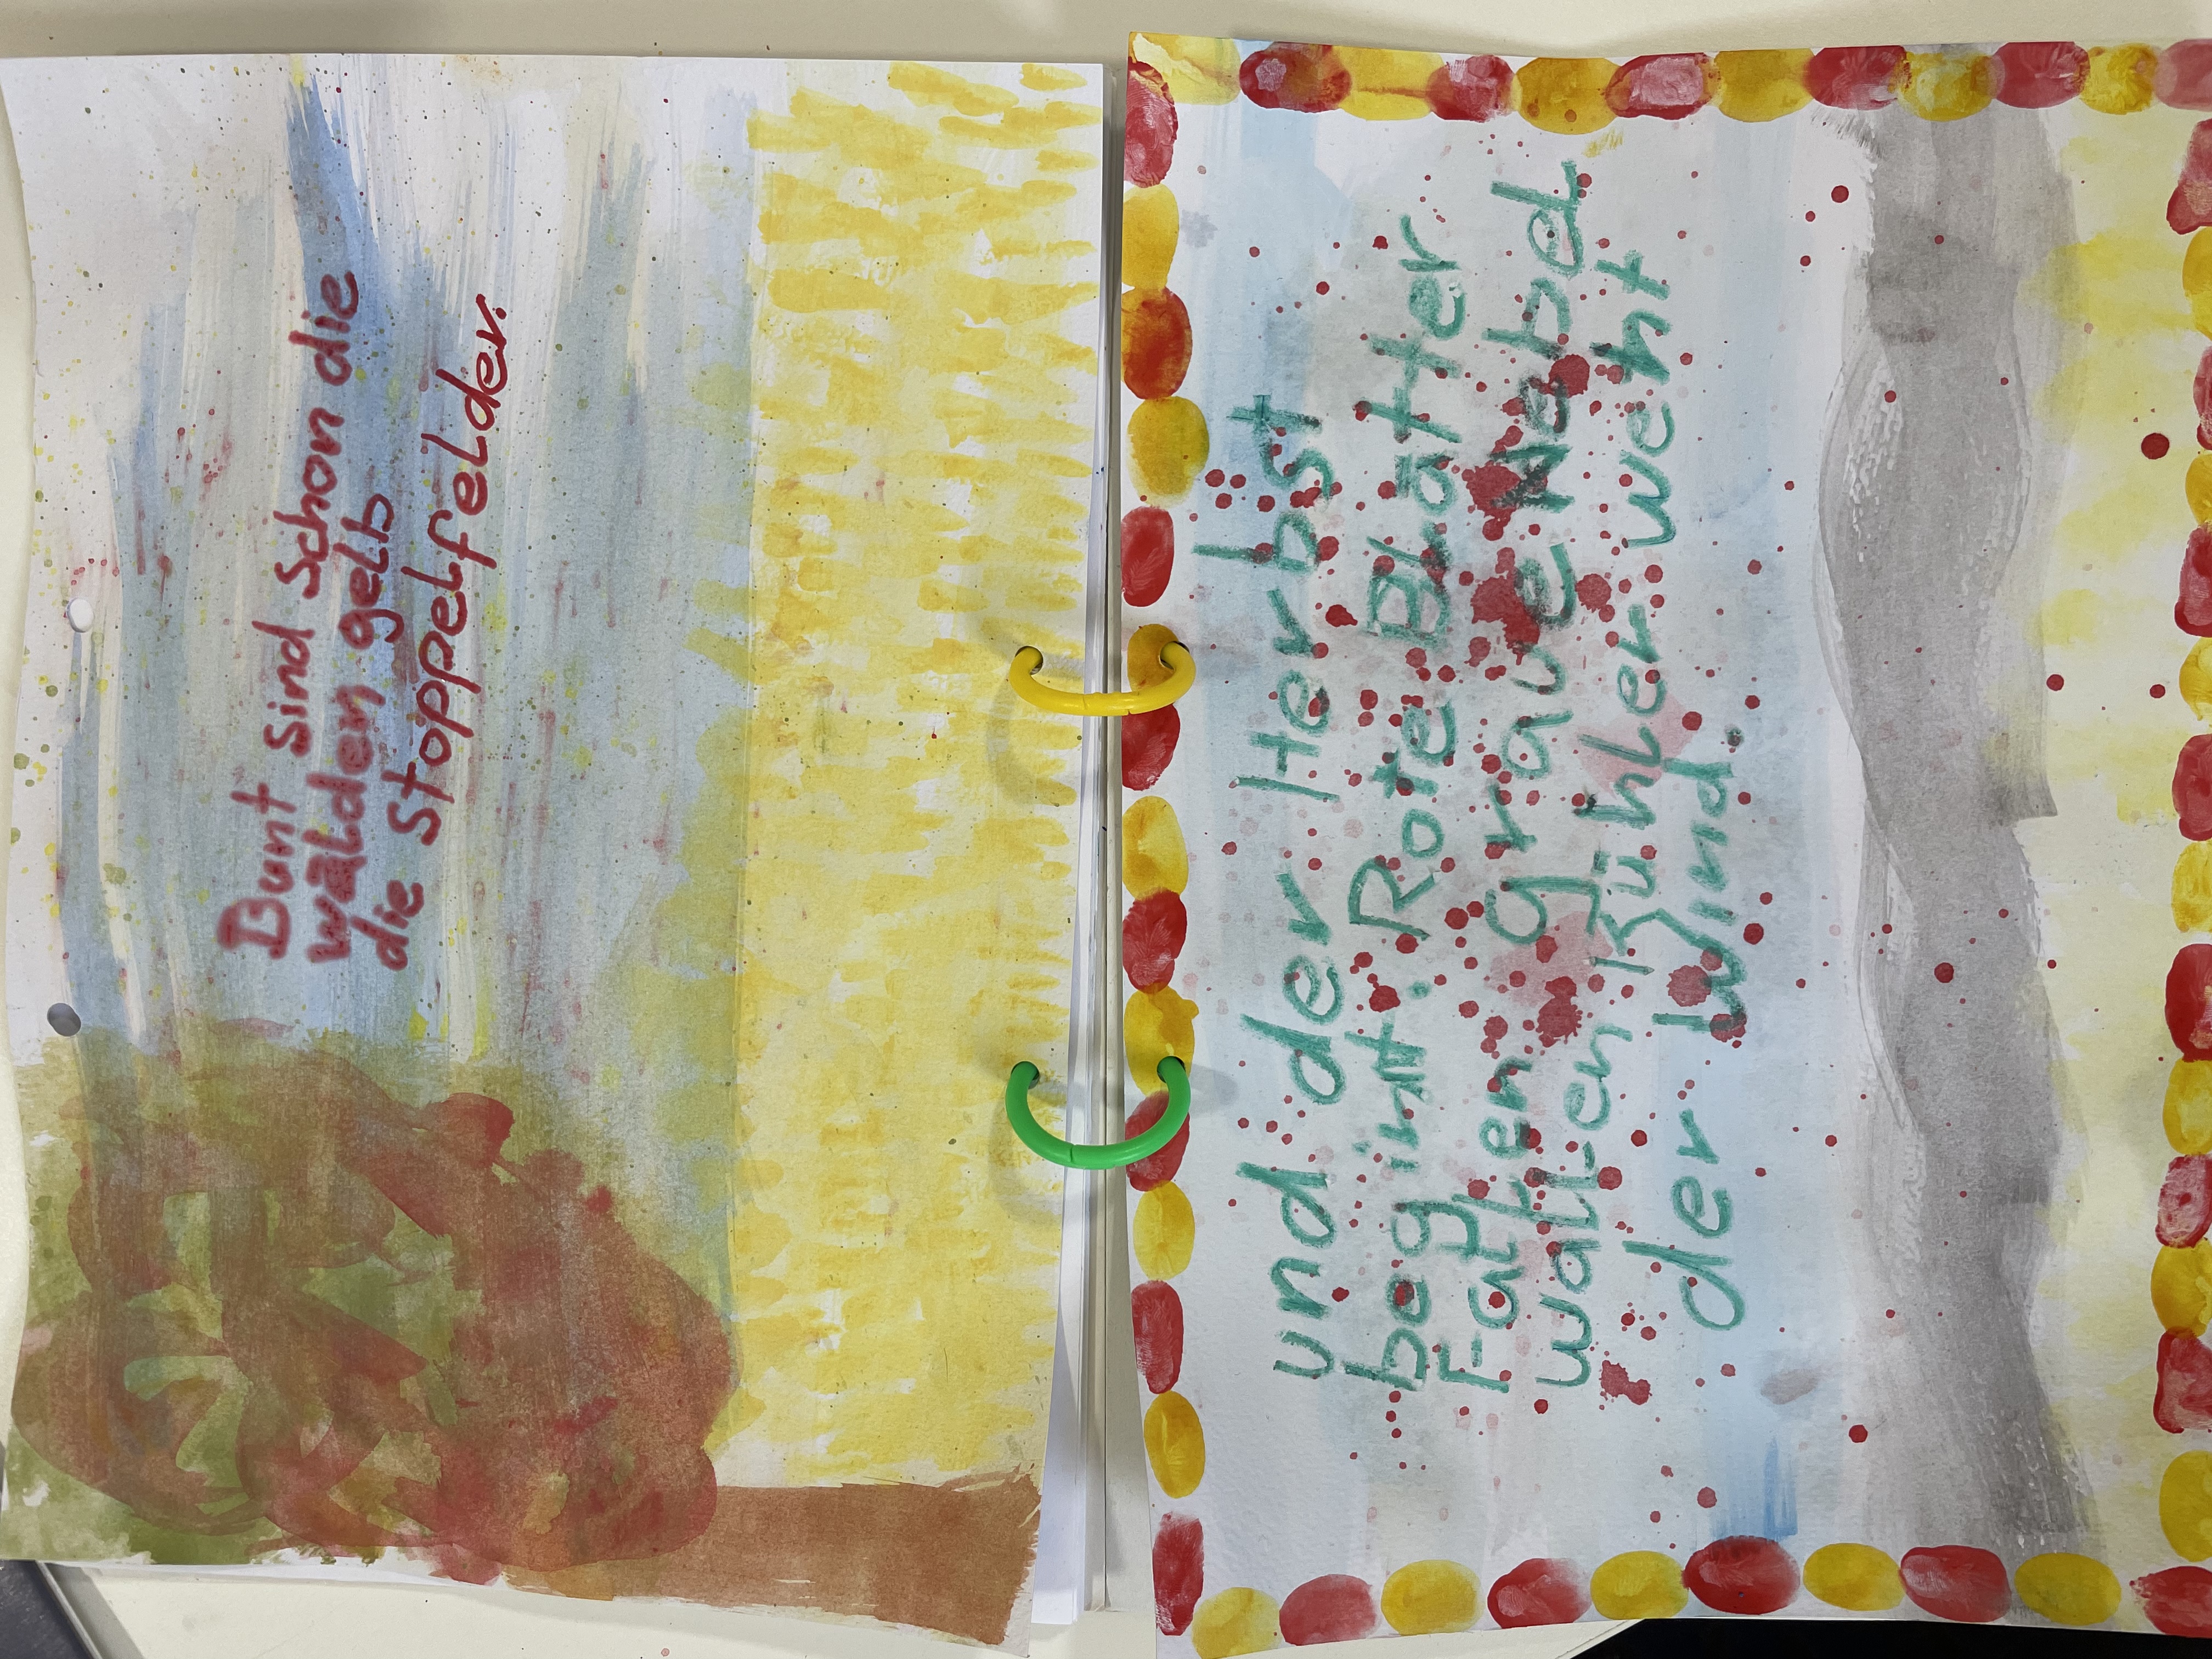 Bunt sind schon die
wälden gelb
die stoppelfelder.
und der Herbst
begint. Rote Bläter
Falten graue Nebd
wallen Kühler weht
der Wind.